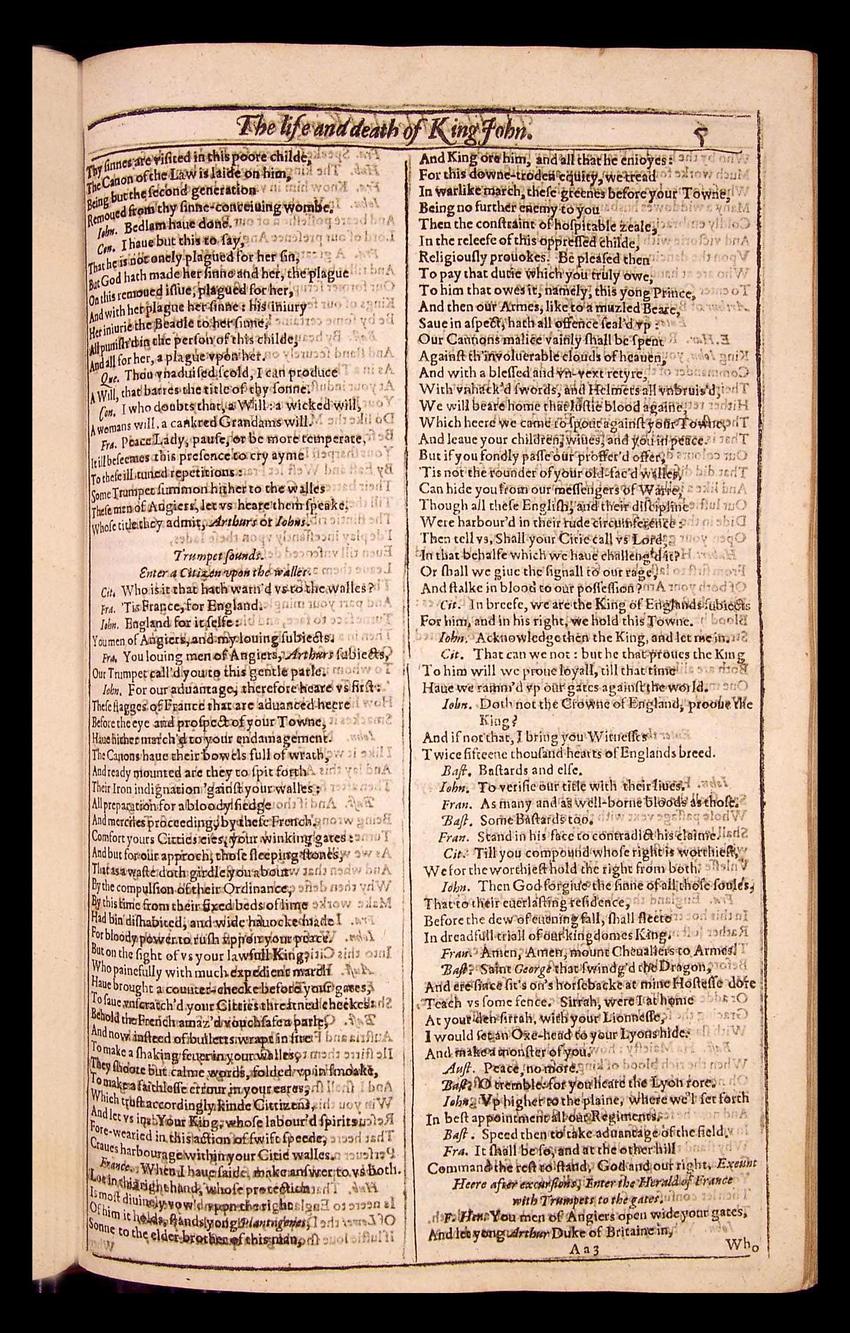 The life and death of King John.
5
Thy sinnes are visited in this poore childe,
The Canon of the Law is laide on him,
Being but the second generation
Remoued from thy sinne-conceiuing wombe.
Iohn. Bedlam haue done.
Con. I haue but this to say,
That he is not onely plagued for her sin,
But God hath made her sinne and her, the plague
On this remoued issue, plagued for her,
And with her plague her sinne: his iniury
Her iniurie the Beadle to her sinne,
All punish'd in the person of this childe,
And all for her, a plague vpon her.
Que. Thou vnaduised scold, I can produce
A Will, that barres the title of thy sonne.
Con. I who doubts that, a Will: a wicked will,
A womans will, a cankred Grandams will.
Fra. Peace Lady, pause, or be more temperate,
It ill beseemes this presence to cry ayme
To these ill-tuned repetitions:
Some Trumpet summon hither to the walles
These men of Angiers, let vs heare them speake,
Whose title they admit, Arthurs or Iohns.
Trumpet sounds.
Enter a Citizen vpon the walles.
Cit. Who is it that hath warn'd vs to the walles?
Fra. 'Tis France, for England.
Iohn. England for it selfe:
You men of Angiers, and my louing subiects.
Fra. You louing men of Angiers, Arthurs subiects,
Our Trumpet call'd you to this gentle parle.
Iohn. For our aduantage, therefore heare vs first:
These flagges of France that are aduanced heere
Before the eye and prospect of your Towne,
Haue hither march'd to your endamagement.
The Canons haue their bowels full of wrath,
And ready mounted are they to spit forth
Their Iron indignation 'gainst your walles:
All preparation for a bloody siedge
And merciles proceeding, by these French.
Comfort yours Citties eies, your winking gates:
And but for our approch, those sleeping stones,
That as a waste doth girdle you about
By the compulsion of their Ordinance,
By this time from their fixed beds of lime
Had bin dishabited, and wide hauocke made
For bloody power to rush vppon your peace.
But on the sight of vs your lawfull King,
Who painefully with much expedient march
Haue brought a counter-checke before your gates,
To saue vnscratch'd your Citties threatned cheekes:
Behold the French amaz'd vouchsafe a parle,
And now insteed of bulletts wrapt in fire
To make a shaking feuer in your walles,
They shoote but calme words, folded vp in smoake,
To make a faithlesse errour in your eares,
Which trust accordingly kinde Cittizens,
And let vs in. Your King, whose labour'd spirits
Fore-wearied in this action of swift speede,
Craues harbourage within your Citie walles.
France. When I haue saide, make answer to vs both.
Loe in this right hand, whose protection
Is most diuinely vow'd vpon the right
Of him it holds, stands yong Plantagenet,
Sonne to the elder brother of this man,
And King ore him, and all that he enioyes:
For this downe-troden equity, we tread
In warlike march, these greenes before your Towne,
Being no further enemy to you
Then the constraint of hospitable zeale,
In the releefe of this oppressed childe,
Religiously prouokes. Be pleased then
To pay that dutie which you truly owe,
To him that owes it, namely, this yong Prince,
And then our Armes, like to a muzled Beare,
Saue in aspect, hath all offence seal'd vp:
Our Cannons malice vainly shall be spent
Against th'involuerable clouds of heauen,
And with a blessed and vn-vext retyre,
With vnhack'd swords, and Helmets all vnbruis'd,
We will beare home that lustie blood againe,
Which heere we came to spout against your Towne,
And leaue your children, wiues, and you in peace.
But if you fondly passe our proffer'd offer,
'Tis not the rounder of your old-fac'd walles,
Can hide you from our messengers of Warre,
Though all these English, and their discipline
Were harbour'd in their rude circumference:
Then tell vs, Shall your Citie call vs Lord,
In that behalfe which we haue challeng'd it?
Or shall we giue the signall to our rage,
And stalke in blood to our possession?
Cit. In breefe, we are the King of Englands subiects
For him, and in his right, we hold this Towne.
Iohn. Acknowledge then the King, and let me in.
Cit. That can we not: but he that proues the King
To him will we proue loyall, till that time
Haue we ramm'd vp our gates against the world.
Iohn. Doth not the Crowne of England, prooue the
King?
And if not that, I bring you Witnesses
Twice fifteene thousand hearts of Englands breed.
Bast. Bastards and else.
Iohn. To verifie our title with their liues.
Fran. As many and as well-borne bloods as those.
Bast. Some Bastards too.
Fran. Stand in his face to contradict his claime.
Cit. Till you compound whose right is worthiest,
We for the worthiest hold the right from both.
Iohn. Then God forgiue the sinne of all those soules,
That to their euerlasting residence,
Before the dew of euening fall, shall fleete
In dreadfull triall of our kingdomes King.
Fran. Amen, Amen, mount Cheualiers to Armes.
Bast. Saint George that swindg'd the Dragon,
And ere since sit's on's horsebacke at mine Hostesse dore
Teach vs some fence. Sirrah, were I at home
At your den sirrah, with your Lionnesse,
I would set an Oxe-head to your Lyons hide:
And make a monster of you.
Aust. Peace, no more.
Bast. O tremble: for you heare the Lyon rore.
Iohn. Vp higher to the plaine, where we'l set forth
In best appointment all our Regiments.
Bast. Speed then to take aduantage of the field.
Fra. It shall be so, and at the other hill
Command the rest to stand, God and our right. Exeunt
Heere after excursions, Enter the Herald of France
with Trumpets to the gates.
F. Her. You men of Angiers open wide your gates,
And let yong Arthur Duke of Britaine in,
Aa3
Who